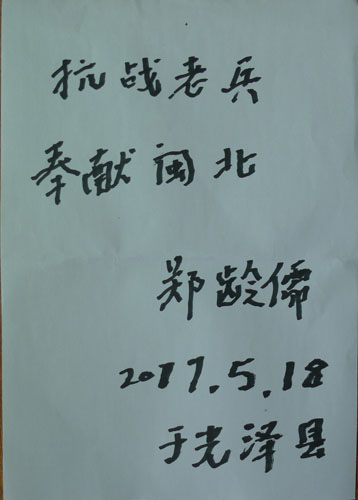 抗战老兵
奉献闽北
郑龄儒
2017.5.18
于光泽县